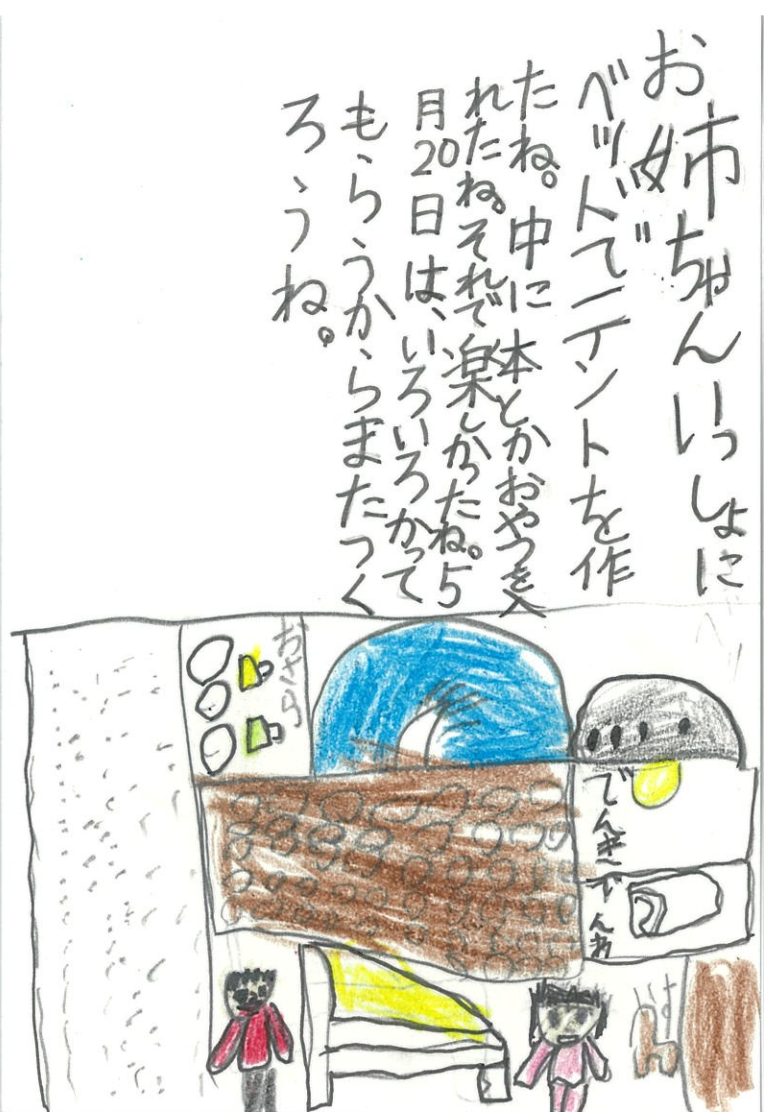 お姉ちゃんいっしょに
ベッドでテントを作
たね。中に本とかおやつを入
れたね。それで楽しかったね。5
月20日は、いろいろかって
もらうからまたつく
ろうね。
おさら
でんき
いす